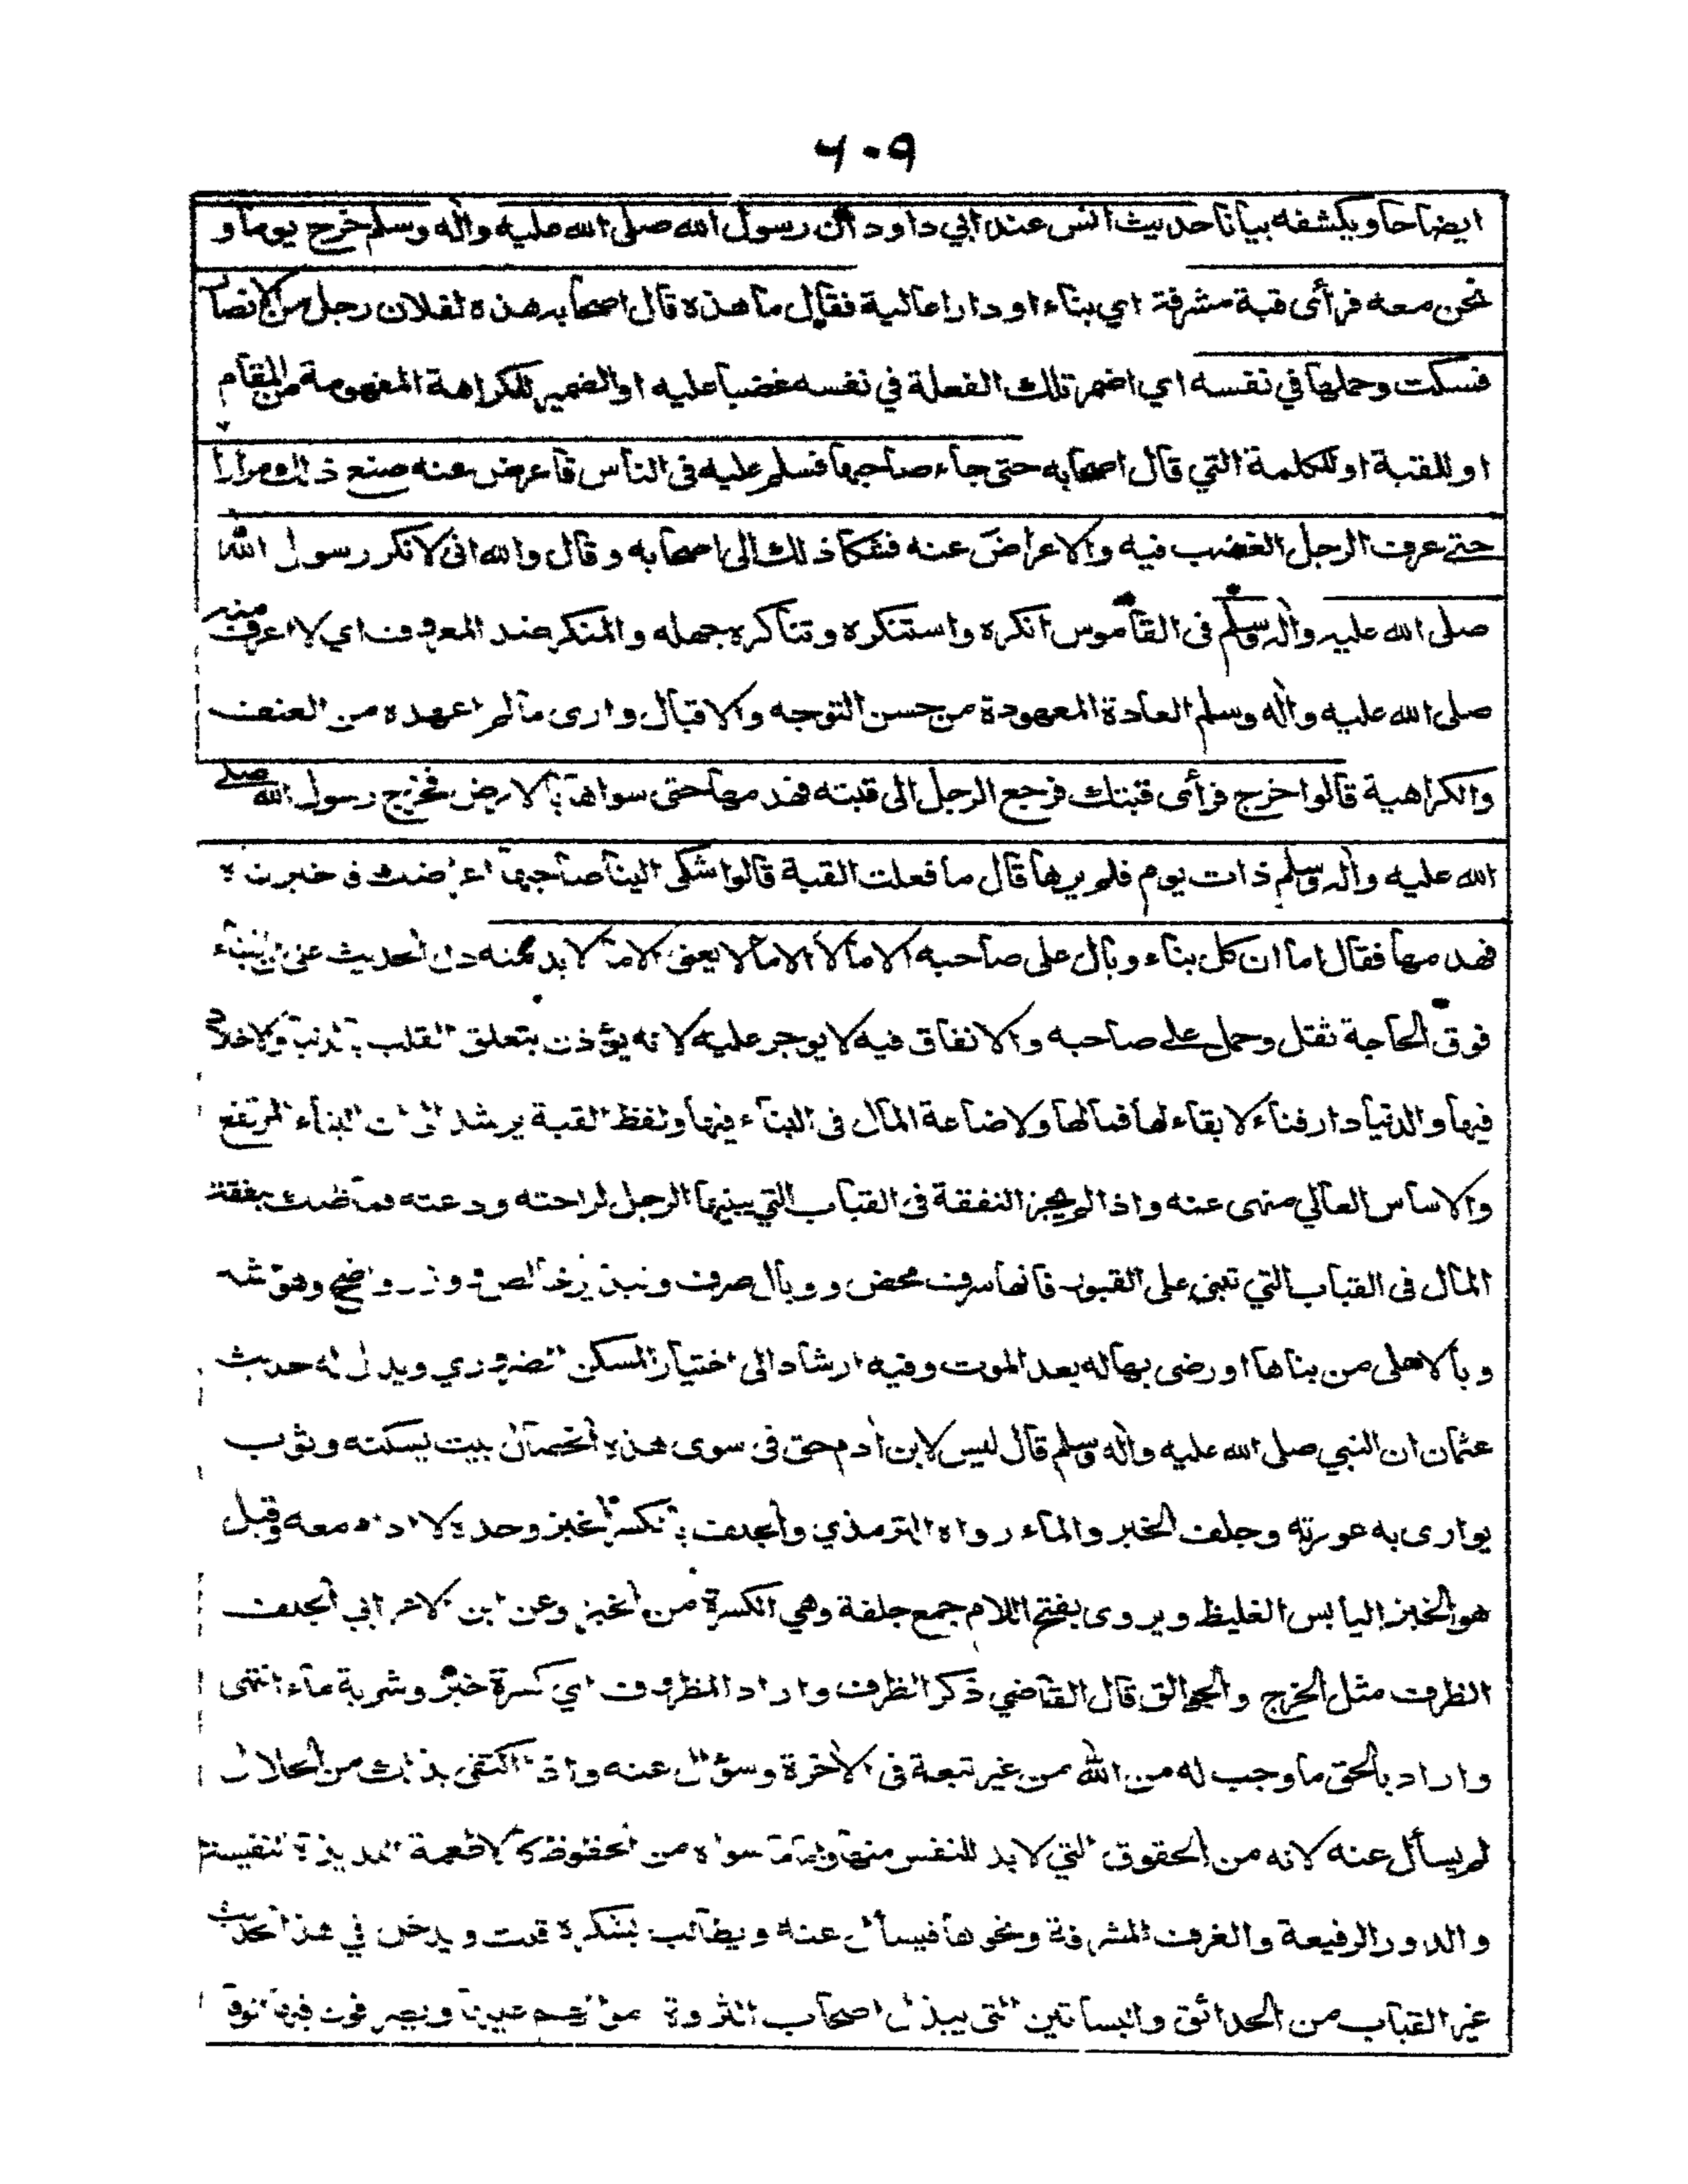 ٦٠٩
ايضاحا ويكشفه بيانا حديث انس عند ابي داود ان رسول الله صلى الله عليه واله وسلم خرج يوما و
نحن معه فرأى قبة مشرفة اي بناء او دارا عالية فقال ما هذه قال اصحابه هذه لفلان رجل من الانصار
فسكت وحملها في نفسه اي اضمر تلك الفعلة في نفسه غضبا عليه او الضمير للكراهة المفهومة من المقام
او للقبة او للكلمة التي قال اصحابه حتى جاء صاحبها فسلم عليه في الناس فاعرض عنه صنع ذلك مرارا
حتى عرف الرجل الغضب فيه والاعراض عنه فشكا ذلك الى اصحابه وقال والله اني لانكر رسول الله
صلى الله عليه واله وسلم في القاموس انكره واستنكره وتناكره جهله والمنكر ضد المعروف اي لا اعرف منه
صلى الله عليه واله وسلم العادة المعهودة من حسن التوجه والاقبال وارى ما لم اعهده من العنف
والكراهية قالوا خرج فرأى قبتك فرجع الرجل الى قبته فهدمها حتى سواها بالارض فخرج رسول الله صلى
الله عليه واله وسلم ذات يوم فلم يرها قال ما فعلت القبة قالوا شكى الينا صاحبها اعراضك فاخبرناه
فهدمها فقال اما ان كل بناء وبال على صاحبه الا ما لا الا ما لا يعني الا ما لا بد منه دل الحديث على ان البناء
فوق الحاجة ثقل وحمل على صاحبه والانفاق فيه لا يوجر عليه لانه يؤذن بتعلق القلب بالدنيا والاخلاد
فيها والدنيا دار فناء لا بقاء لها فمالها ولاضاعة المال في البناء فيها ولفظ القبة يرشد الى ان البناء المرتفع
والاساس العالي منهى عنه واذا لم يجز النفقة في القباب التي يبنيها الرجل لراحته ودعته فما ظنك بنفقة
المال في القباب التي تبنى على القبور فانها سرف محض ووبال صرف وتبذير خالص ووزر واضح وهو شه
وبالا على من بناها او رضى بها له بعد الموت وفيه ارشاد الى اختيار المسكن الضروري ويدل له حديث
عثمان ان النبي صلى الله عليه واله وسلم قال ليس لابن أدم حق في سوى هذه الخصال بيت يسكنه وثوب
يوارى به عورته وجلف الخبز والماء رواه الترمذي والجلف بالكسر الخبز وحده لا ادام معه وقيل
هو الخبز اليابس الغليظ ويروى بفتح اللام جمع جلفة وهي الكسرة من الخبز وعن ابن الاعرابي الجلف
الظرف مثل الخرج والجوالق قال القاضي ذكر الظرف واراد المظروف اي كسرة خبز وشربة ماء انتهى
واراد بالحق ما وجب له من الله من غير تبعة في الأخرة وسؤال عنه واذا اكتفى بذلك من الحلال
لم يسأل عنه لانه من الحقوق التي لا بد للنفس منها واما ما سواه من الحظوظ كالاطعمة اللذيذة النفيسة
والدور الرفيعة والغرف المشرفة ونحوها فيسأل عنه ويطالب بشكره قلت ويدخل في هذا الحديث
غير القباب من الحدائق والبساتين التي يبذل اصحاب الثروة اموالهم عليها ويصرفون فيها فوق